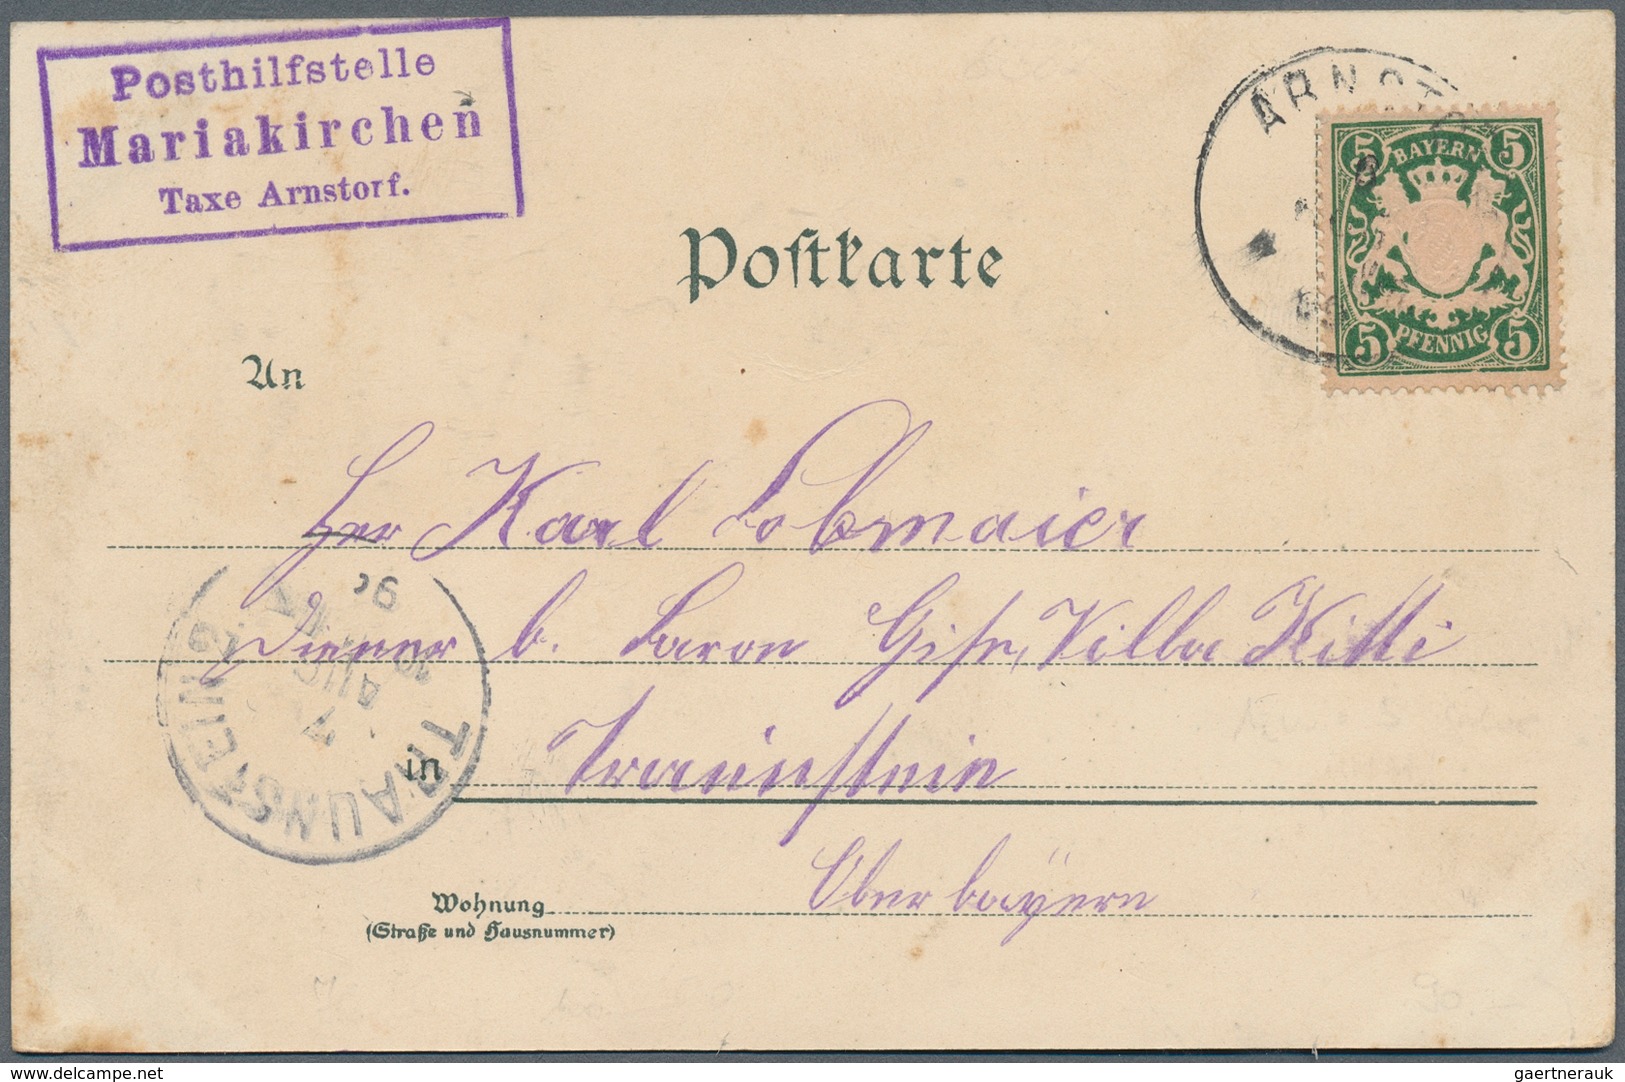 Posthilfstelle
Mariakirchen
Taxe Arnstorf.
ARNST
5 BAYERN 5
5 PFENNIG 5
Postkarte
An
Herr Karl Lobmaier
Diener b. Baron Gise, Villa Kitti
in Traunstein
TRAUNSTEIN
7
AUG
10
Oberbayern
Wohnung
(Straße und Hausnummer)
90.-
www.delcampe.net
gaertnerauk